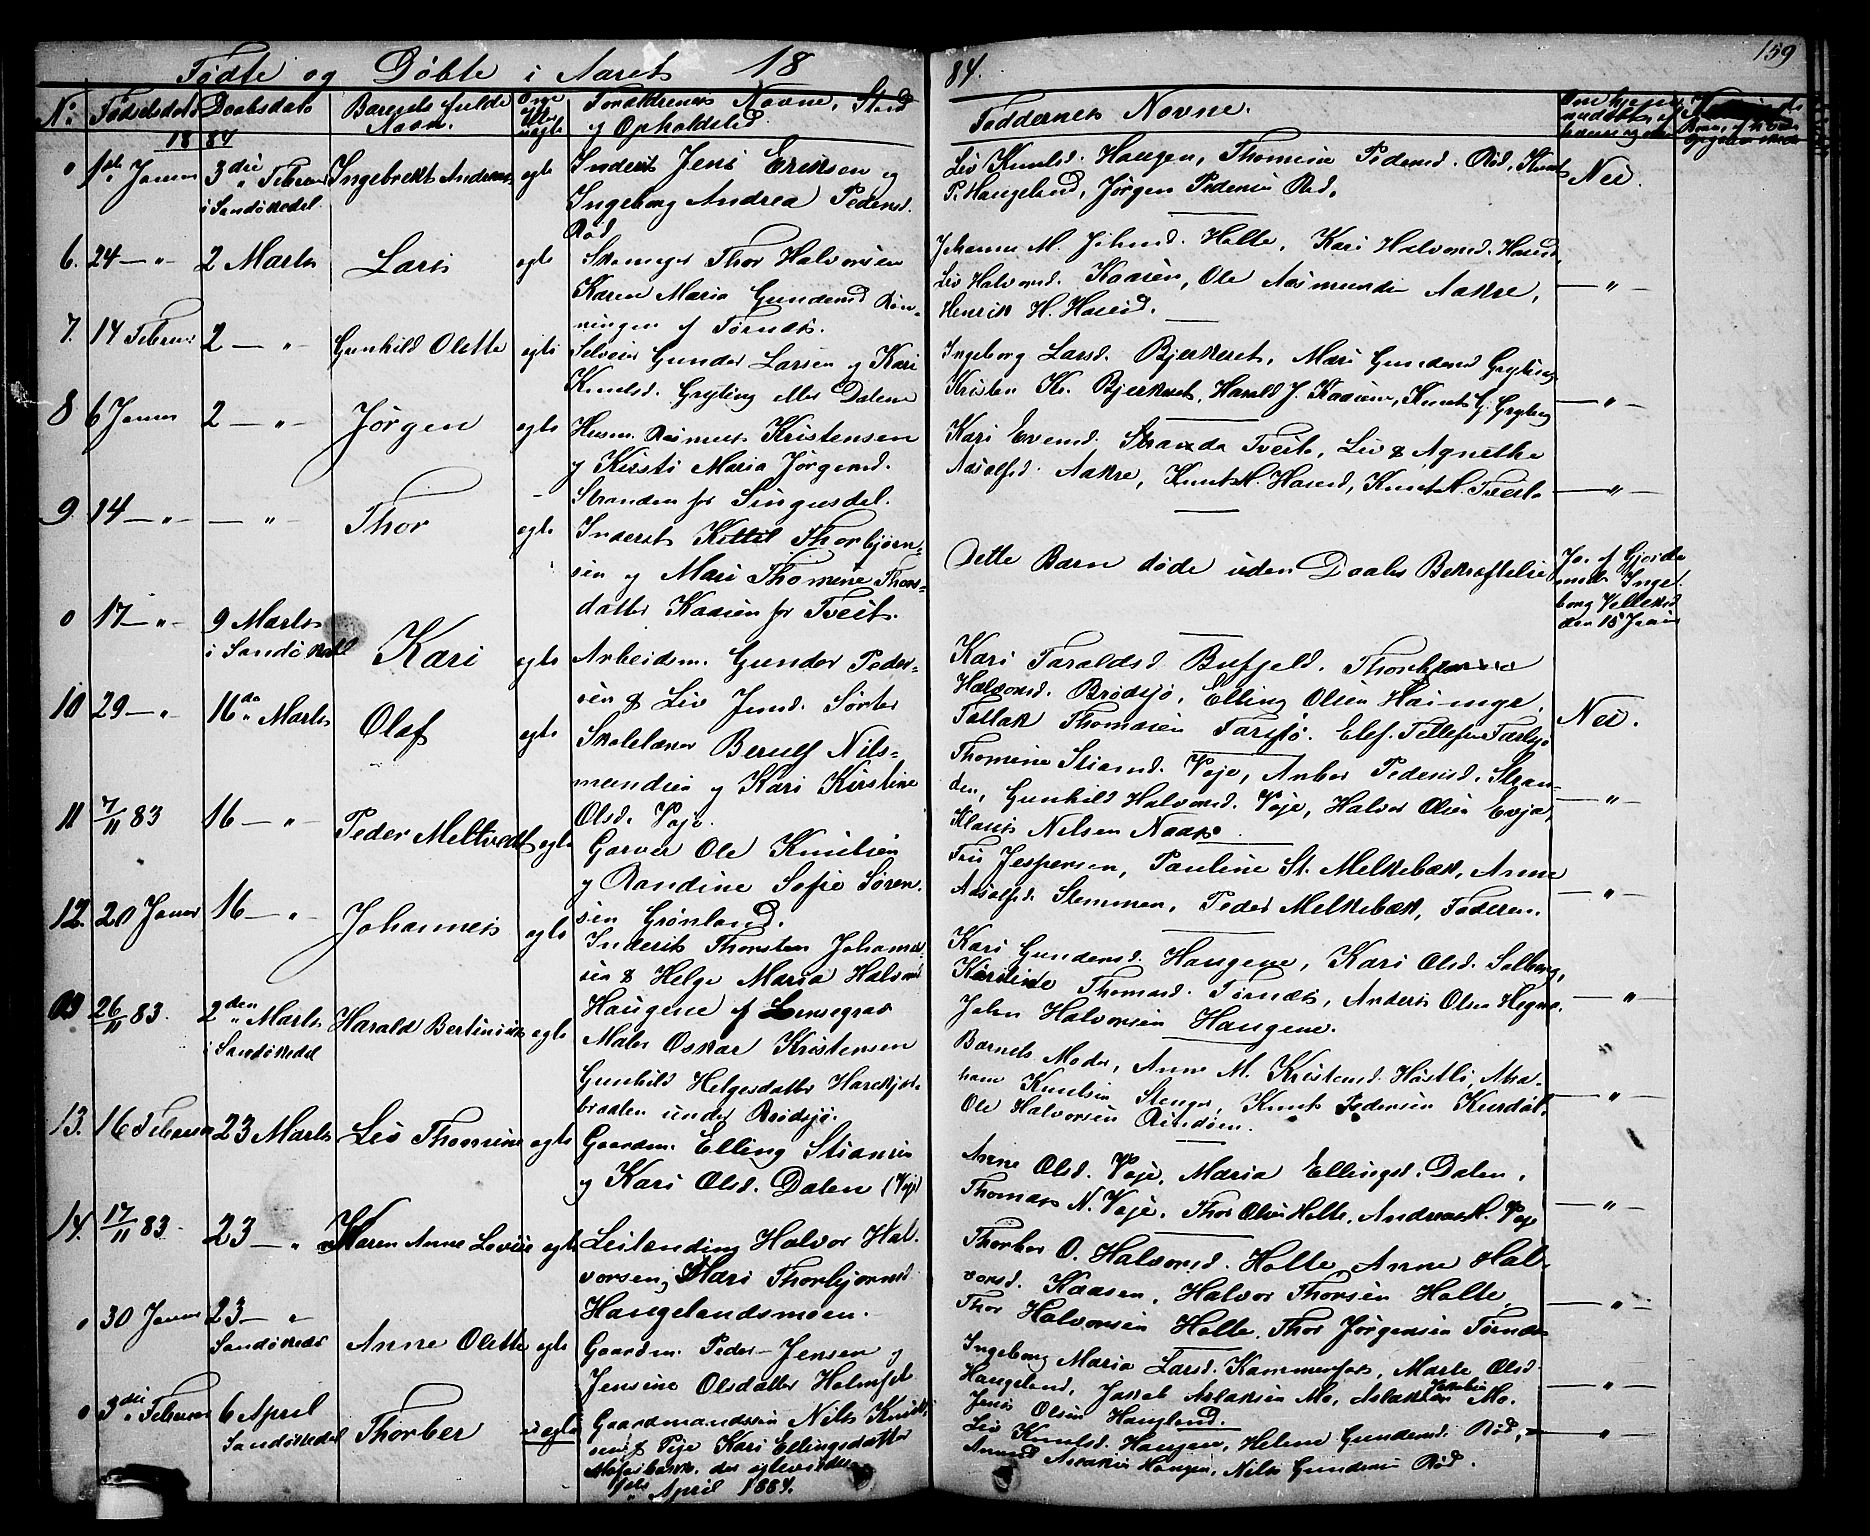 159
Fødte og Døbte i Aaret 18 84.
No. Fødselsdato Daabsdato Barnets fulde Navn. Forældrenes Navne, Stand og Opholdsted. Faddernes Navne.
1884
0 1ste Januar 3die Februar i Sandøkedal Ingebrekt Andreas egte
Inderst Jens Eriksen og
Ingeborg Andrea Pedersd.
Rød
Liv Knutsd. Haugen, Thomine Pedersd. Rød, Knut
P. Haugeland, Jørgen Pedersen Rød.
Nei.
6. 24 — " 2 Marts Lars egte
Thor Halvorsen
Karen Maria Gundersd. Røn-
ningen af Tørnes.
Johanne M. Johnsd. Holte, Kari Halvorsd. Haset
Liv Halvorsd. Kaasen, Ole Aasmundsen Aakre,
Henrik H. Haset.
— " —
7. 14 Februar 2 — " — Gunhild Olette egte
Selveier Gunder Larsen og Kari
Knutsd. Gryting eller Dalene
Ingeborg Larsd. Bjerkeset, Mari Gundersd Gryting
Kristen Kr. Bjerkeset, Harald J. Kaasene, Knut G. Gryting
— " —
8 6 Januar 2 — " — Jørgen egte
Husm. Rasmus Kristensen
og Kirsti Maria Jørgensd.
Stranden for Singusdal.
Kari Evensd. Stranda Tveit, Liv & Agnethe
Aasolfsd. Aakre, Knut H. Hased, Knut A. Tveit
— " —
9. 14 — " — — " — Thor egte
Inderst Kittil Thorbjørn-
sen og Mari Thomine Thors-
datter Kaasen for Tveit.
Dette Barn døde uden Daabs Bekræftelse
Ja. af Gjorde-
mor Inge-
borg
den 15 Januar
0 17 — " — 9 Marts i Sandøkedal Kari egte
Arbeidsm. Gunder Peder-
sen & Liv Jensd. Sørter
Kari Taraldsd. Bufjeld.
Halvorsd. Brødsjø, Elling Olsen
Tallak Thomasen Farsjø. Elef Tellefsen Farsjø
Nei.
10 29 — " 16de Marts Olaf egte
Skolelærer Berulf Nils-
mundsen og Kari Kirstine
Olsd. Vøje.
Thomine Stiansd. Vøje, Anbør Pedersd. Stran-
den, Gunhild Halvorsd. Vøje, Halvor Olsen Evja,
Klaus Nilsen Naas.
— " —
11 7/11 83 16 — " — Peder Meltvedt egte
Garver Ole Knutsen
og Randine Sofie Søren-
sen Grønland.
Frü Jespersen, Pauline St. Melkebæk, Anne
Aasolfsd. Stemmen, Peder Melkebæk, Faderen.
— " —
12. 20 Januar 16 — " — Johannes egte
Inderst Thorsten Johannes-
sen & Helge Maria Halvorsd
Haugene af
Kari Gundersd. Haugene, Kari Olsd. Solberg,
Karstine Thomasd. Tørnes, Anders Olsen Hegna.
John Halvorsen Haugene.
— " —
0 26/11 83. 2den Marts i Sandøkedal Harald Bertinius egte
Maler Oskar Kristensen
Gunhild Helgesdatter
braaten under Brødsjø.
Barnets Moder, Anne M. Kristensd. Høstli, Abra-
ham Knutsen Stenger, Knut Pedersen Kurdøl.
Ole Halvorsen
— " —
13. 16 Februar 23 Marts Liv Thomine egte
Gaardm. Elling Stiansen
og Kari Olsd. Dalen (Vøje)
Anne Olsd. Vøje, Maria Ellingsd. Dalen,
Thomas N. Vøje. Thor Olsen Holte, Andreas A. Vøje
— " —
14. 17/11 83. 23 — " Karen Anne Lovise egte
Leilending Halvor Hal-
vorsen, Mari Thorbjørnsd
Haugelandsmoen.
Thorbør O. Halvorsd. Holte, Anne Hal-
vorsd. Kaasen, Halvor Thorsen Holte,
Thor Halvorsen Holte, Thor Jørgensen Tørnes
— " —
0 30 Januar 23 — " Sandøkedal Anne Olette egte
Gaardm. Peder Jensen og
Jensine Olsdatter
Ingeborg Maria Larsd. Kammerfos, Marte Olsd
Haugeland, Jakob Aslaksen Mo, Aslak Mo.
Jens Olsen Haugland.
— " —
0 3die Februar 6 April Sandøkedal Thorber uegte
Gaardmandssøn Nils Knut-
sen & Pige Kari Ellingsdatter
April 1884.
Liv Knutsd. Haugen, Helene Gundersd. Rød,
Haugen, Nils Gundersen Rød.
— " —